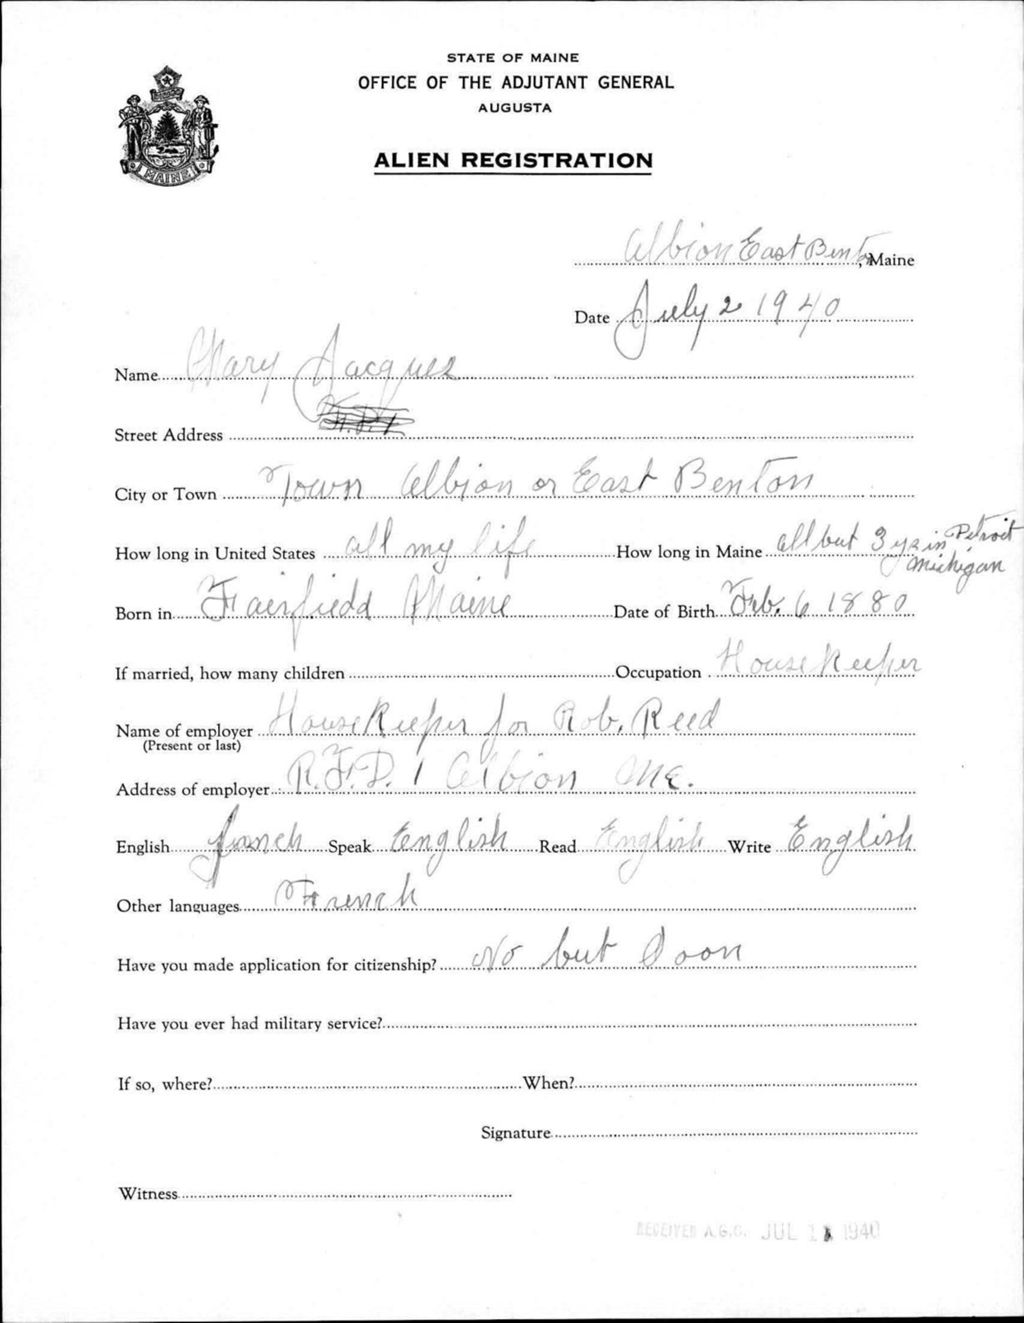 STATE OF MAINE
OFFICE OF THE ADJUTANT GENERAL
AUGUSTA
ALIEN REGISTRATION
MAINE
Albion East Benton, Maine
Date July 2 1940
Name Mary Jacques
Street Address
City or Town Town Albion or East Benton
How long in United States all my life How long in Maine all but 3 yrs in Detroit Michigan
Born in Fairfiedd Maine Date of Birth Feb. 6 1880
If married, how many children Occupation HouseKeeper
Name of employer HouseKeeper for Rob. Reed
(Present or last)
Address of employer R.F.D. 1 Albion ME.
English french Speak English Read English Write English
Other languages French
Have you made application for citizenship? No but Soon
Have you ever had military service?
If so, where? When?
Signature
Witness
RECEIVED A.G.O. JUL 1940